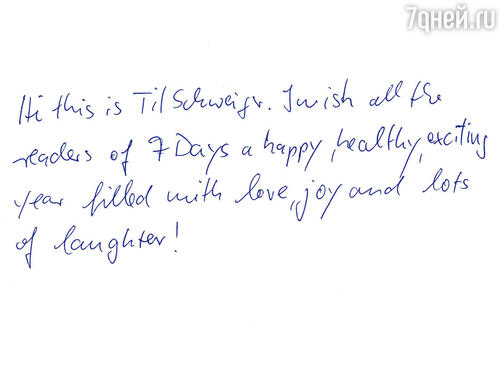 7дней.ru
Hi this is Til Schweiger. I wish all the
readers of 7 Days a happy, healthy, exciting
year filled with love, joy and lots
of laughter!